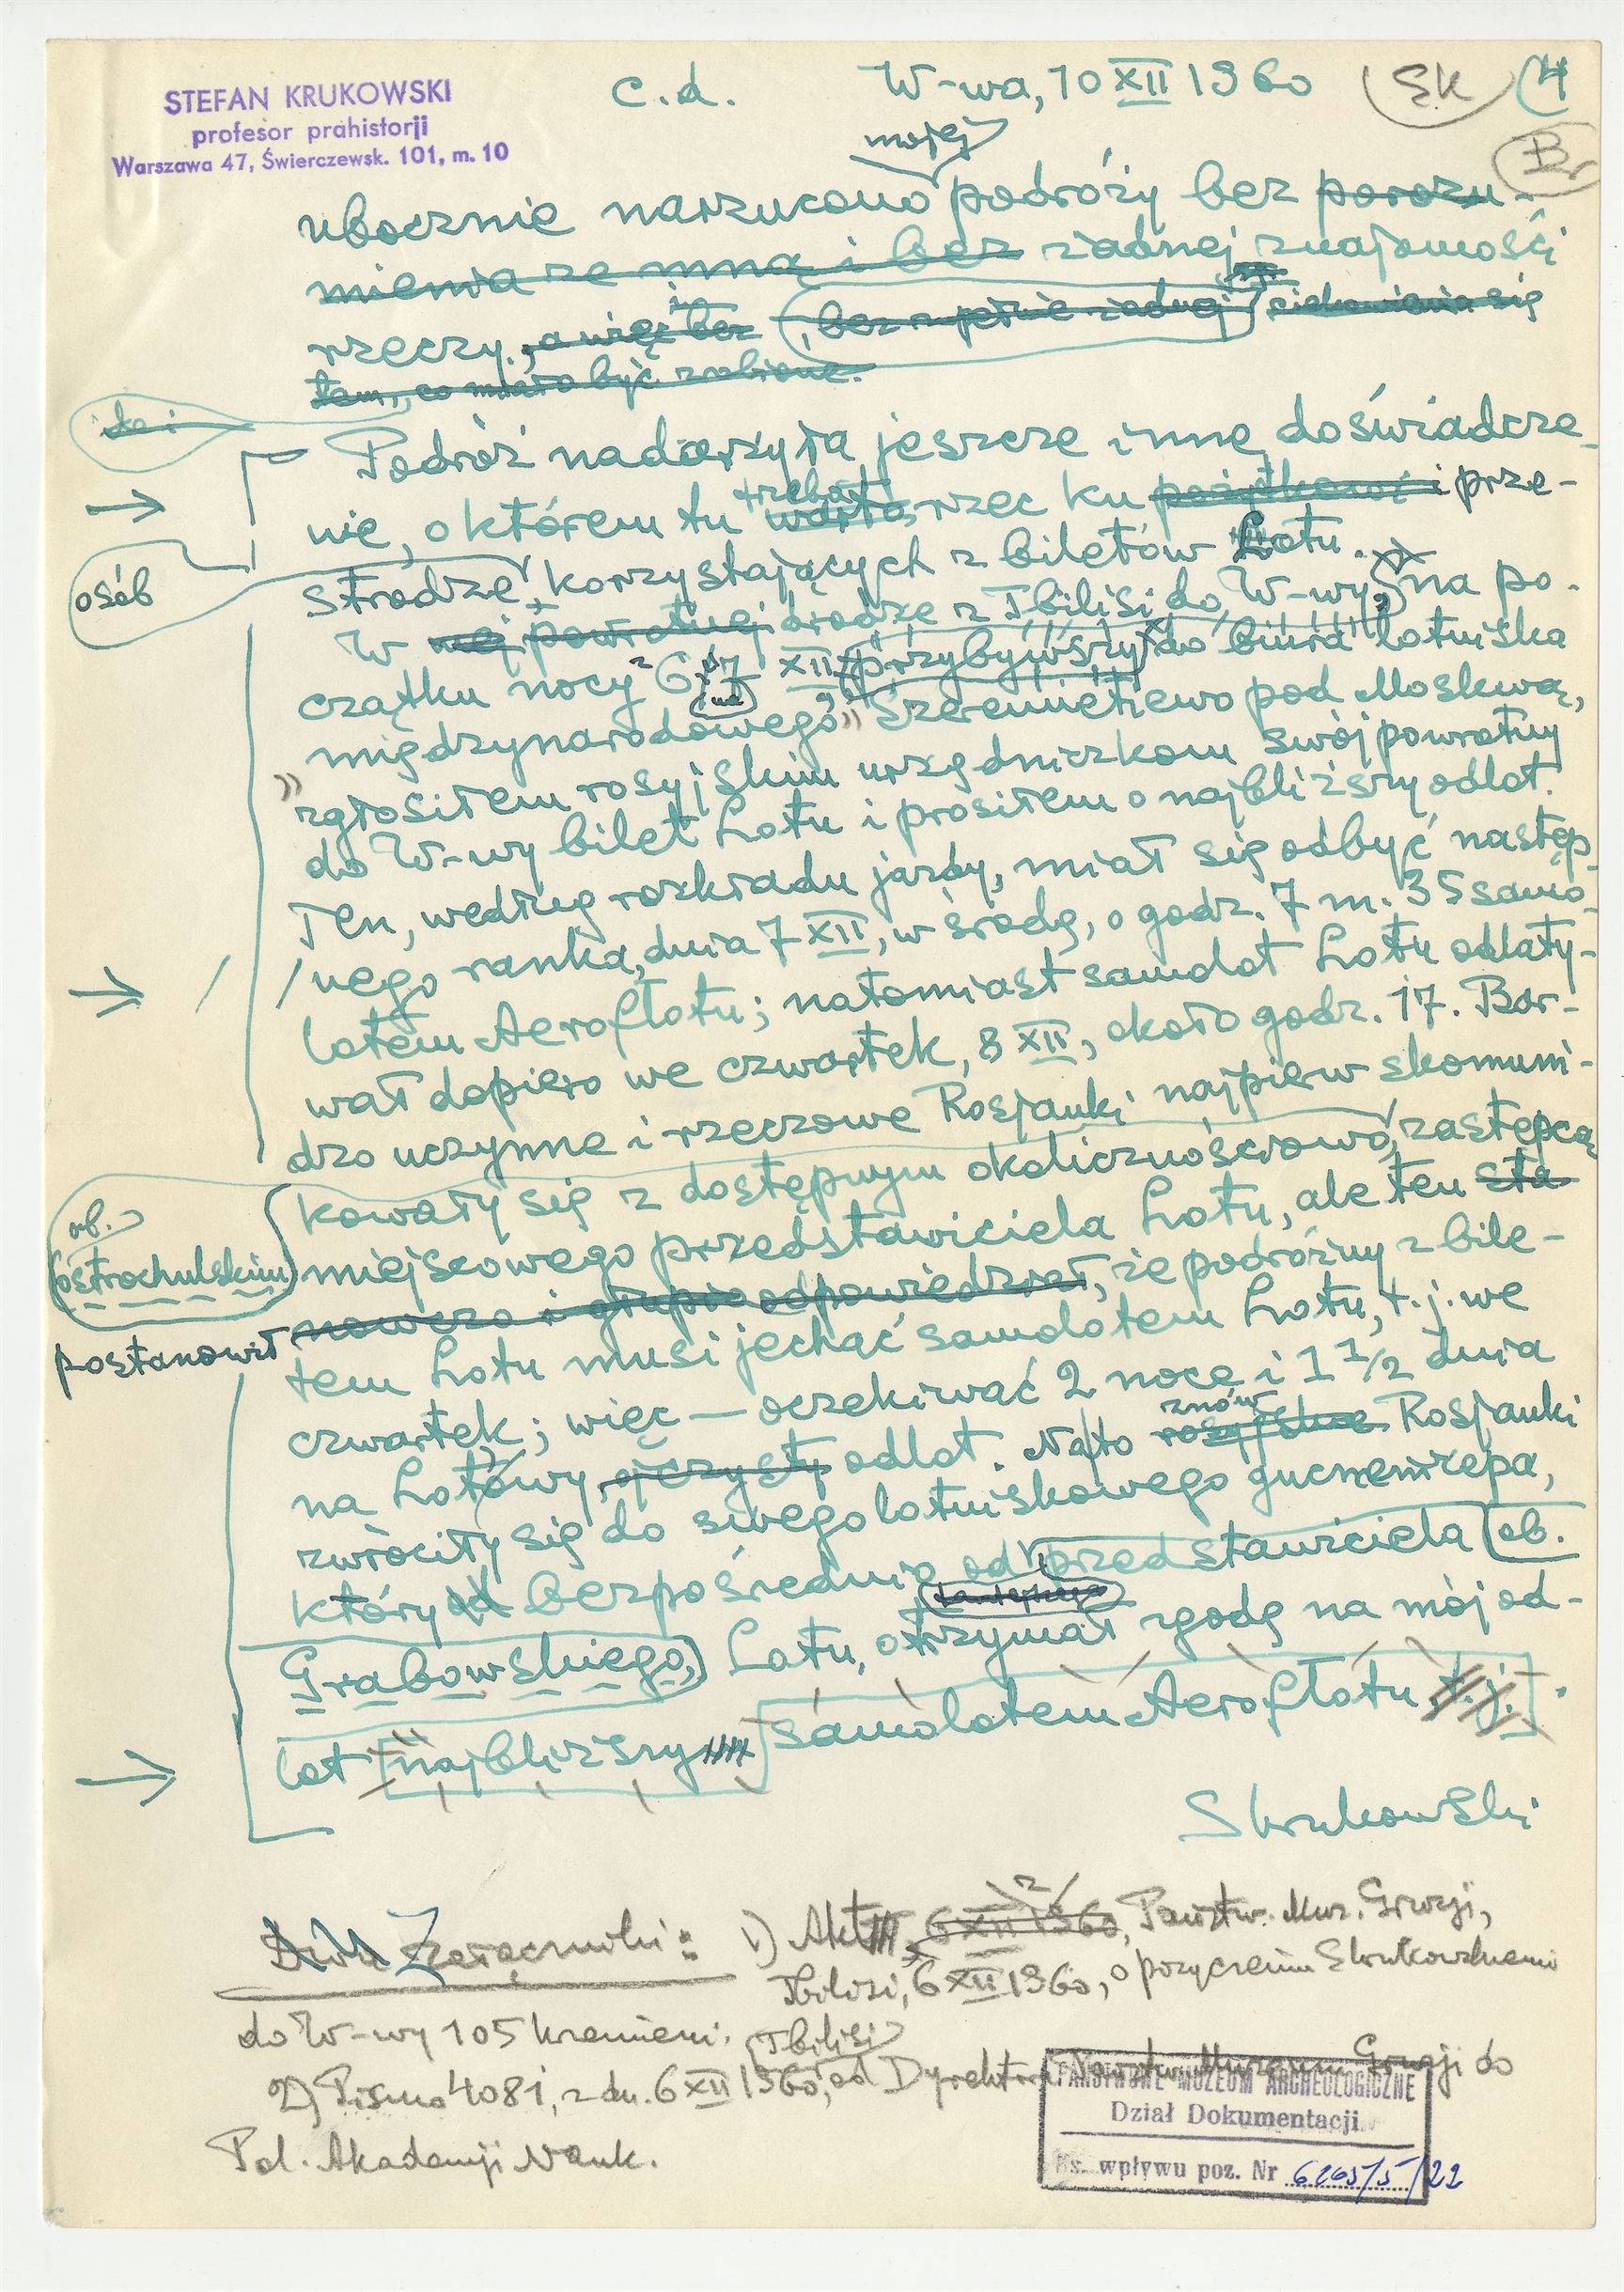 STEFAN KRUKOWSKI
profesor prahistorji
Warszawa 47, Świerczewsk. 101, m. 10
c.d. W-wa, 10 XII 1960 SK 4
Br
mojej
ubocznie narzucono podróży bez porozu-
mienia ze mną i bez żadnej znajomości
rzeczy, a więc bez, bez zupełnie żadnej ciekawienia się
tem, co miało być zrobione.
Podróż nadarzyła jeszcze inne doświadcze-
nie, o którem tu trzeba warto rzec ku i prze-
osób
strodze korzystających z biletów Lotu.
W mej powrotnej drodze z Tbilisi do W-wy, na po-
czątku nocy z 6 na 7 XII przybywszy do biura lotniska
międzynarodowego „Szeremietiewo pod Moskwą,
zgłosiłem rosyjskim urzędniczkom swój powrotny
do W-wy bilet Lotu i prosiłem o najbliższy odlot.
Ten, według rozkładu jazdy, miał się odbyć następ-
nego ranka, dnia 7 XII, w środę, o godz. 7 m. 35 samo-
lotem Aerofłotu; natomiast samolot Lotu odlaty-
wał dopiero we czwartek, 8 XII, około godz. 17. Bar-
dzo uczynne i rzeczowe Rosjanki najpierw skomuni-
kowały się z dostępnym okolicznościowo zastępcą
ob.
ostrochulskim miejscowego przedstawiciela Lotu, ale ten sta
postanowił nowczo i głupio odpowiedział, że podróżny z bile-
tem Lotu musi jechać samolotem Lotu, t.j. we
czwartek; więc — oczekiwać 2 noce i 1 1/2 dnia
na Lotowy, ojczysty odlot. Na to znów rosyjskie Rosjanki
zwróciły się do swego lotniskowego
który od bezpośrednio od przedstawiciela ob.
Grabowskiego, Lotu, otrzymał zgodę na mój od-
lot najbliższy samolotem Aerofłotu t.j.
SKrukowski
Dwa Załączniki: 1) Akt 6 XII 1960, Państw. Muz. Gruzji,
Tbilisi, 6 XII 1960, o pożyczeniu SKrukowskiemu
do W-wy 105 krzemieni.
2) Pismo 4081, z dn. 6 XII 1960, Tbilisi od Dyrektora Państw. Muzeum Gruzji do
Pol. Akademji Nauk.
PAŃSTWOWE MUZEUM ARCHEOLOGICZNE
Dział Dokumentacji
Ks. wpływu poz. Nr 6265/5/22